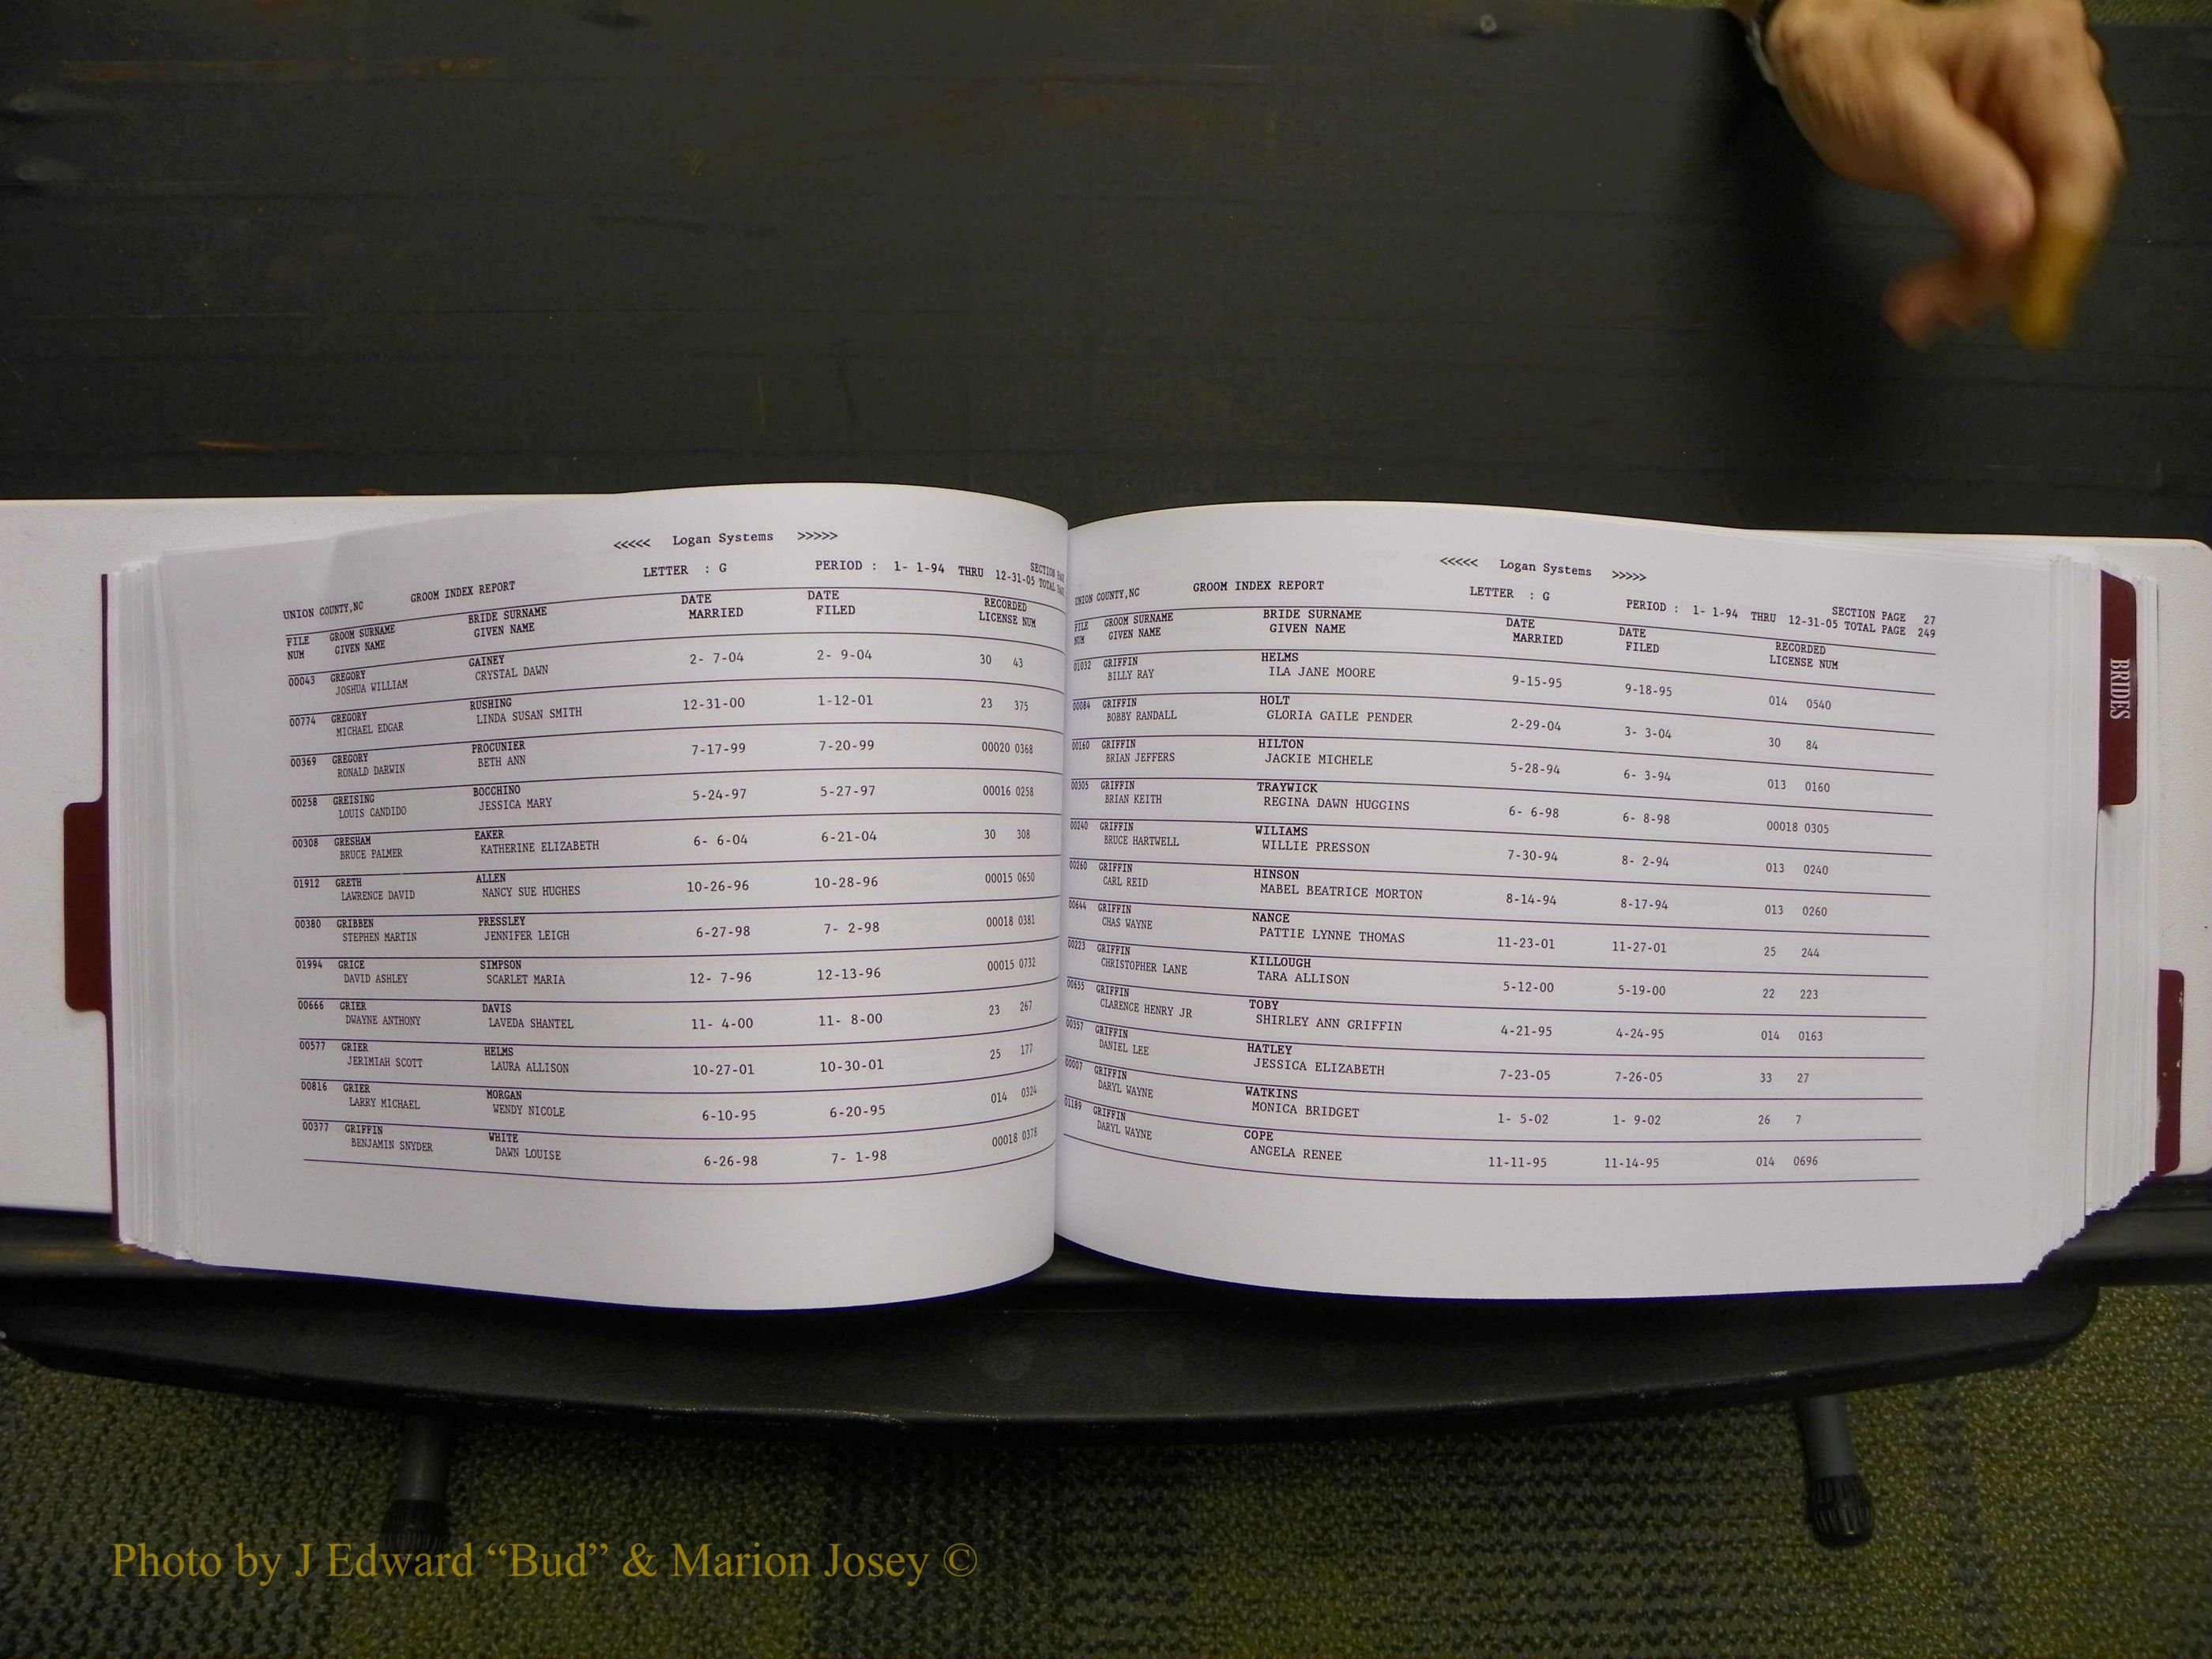 <<<<< Logan Systems >>>>>
UNION COUNTY,NC GROOM INDEX REPORT LETTER : G PERIOD : 1- 1-94 THRU 12-31-05 SECTION
TOTAL
FILE GROOM SURNAME BRIDE SURNAME DATE DATE RECORDED
NUM GIVEN NAME GIVEN NAME MARRIED FILED LICENSE NUM
00043 GREGORY GAINEY 2- 7-04 2- 9-04 30 43
JOSHUA WILLIAM CRYSTAL DAWN
00774 GREGORY RUSHING 12-31-00 1-12-01 23 375
MICHAEL EDGAR LINDA SUSAN SMITH
00369 GREGORY PROCUNIER 7-17-99 7-20-99 00020 0368
RONALD DARWIN BETH ANN
00258 GREISING BOCCHINO 5-24-97 5-27-97 00016 0258
LOUIS CANDIDO JESSICA MARY
00308 GRESHAM EAKER 6- 6-04 6-21-04 30 308
BRUCE PALMER KATHERINE ELIZABETH
01912 GRETH ALLEN 10-26-96 10-28-96 00015 0650
LAWRENCE DAVID NANCY SUE HUGHES
00380 GRIBBEN PRESSLEY 6-27-98 7- 2-98 00018 0381
STEPHEN MARTIN JENNIFER LEIGH
01994 GRICE SIMPSON 12- 7-96 12-13-96 00015 0732
DAVID ASHLEY SCARLET MARIA
00666 GRIER DAVIS 11- 4-00 11- 8-00 23 267
DWAYNE ANTHONY LAVEDA SHANTEL
00577 GRIER HELMS 10-27-01 10-30-01 25 177
JERIMIAH SCOTT LAURA ALLISON
00816 GRIER MORGAN 6-10-95 6-20-95 014 0324
LARRY MICHAEL WENDY NICOLE
00377 GRIFFIN WHITE 6-26-98 7- 1-98 00018 0378
BENJAMIN SNYDER DAWN LOUISE
<<<<< Logan Systems >>>>>
UNION COUNTY,NC GROOM INDEX REPORT LETTER : G PERIOD : 1- 1-94 THRU 12-31-05 SECTION PAGE 27
TOTAL PAGE 249
FILE GROOM SURNAME BRIDE SURNAME DATE DATE RECORDED
NUM GIVEN NAME GIVEN NAME MARRIED FILED LICENSE NUM
01032 GRIFFIN HELMS 9-15-95 9-18-95 014 0540
BILLY RAY ILA JANE MOORE
00084 GRIFFIN HOLT 2-29-04 3- 3-04 30 84
BOBBY RANDALL GLORIA GAILE PENDER
00160 GRIFFIN HILTON 5-28-94 6- 3-94 013 0160
BRIAN JEFFERS JACKIE MICHELE
00305 GRIFFIN TRAYWICK 6- 6-98 6- 8-98 00018 0305
BRIAN KEITH REGINA DAWN HUGGINS
00240 GRIFFIN WILIAMS 7-30-94 8- 2-94 013 0240
BRUCE HARTWELL WILLIE PRESSON
00260 GRIFFIN HINSON 8-14-94 8-17-94 013 0260
CARL REID MABEL BEATRICE MORTON
00644 GRIFFIN NANCE 11-23-01 11-27-01 25 244
CHAS WAYNE PATTIE LYNNE THOMAS
00223 GRIFFIN KILLOUGH 5-12-00 5-19-00 22 223
CHRISTOPHER LANE TARA ALLISON
00655 GRIFFIN TOBY 4-21-95 4-24-95 014 0163
CLARENCE HENRY JR SHIRLEY ANN GRIFFIN
00357 GRIFFIN HATLEY 7-23-05 7-26-05 33 27
DANIEL LEE JESSICA ELIZABETH
00007 GRIFFIN WATKINS 1- 5-02 1- 9-02 26 7
DARYL WAYNE MONICA BRIDGET
01189 GRIFFIN COPE 11-11-95 11-14-95 014 0696
DARYL WAYNE ANGELA RENEE
BRIDES
Photo by J Edward “Bud” & Marion Josey ©